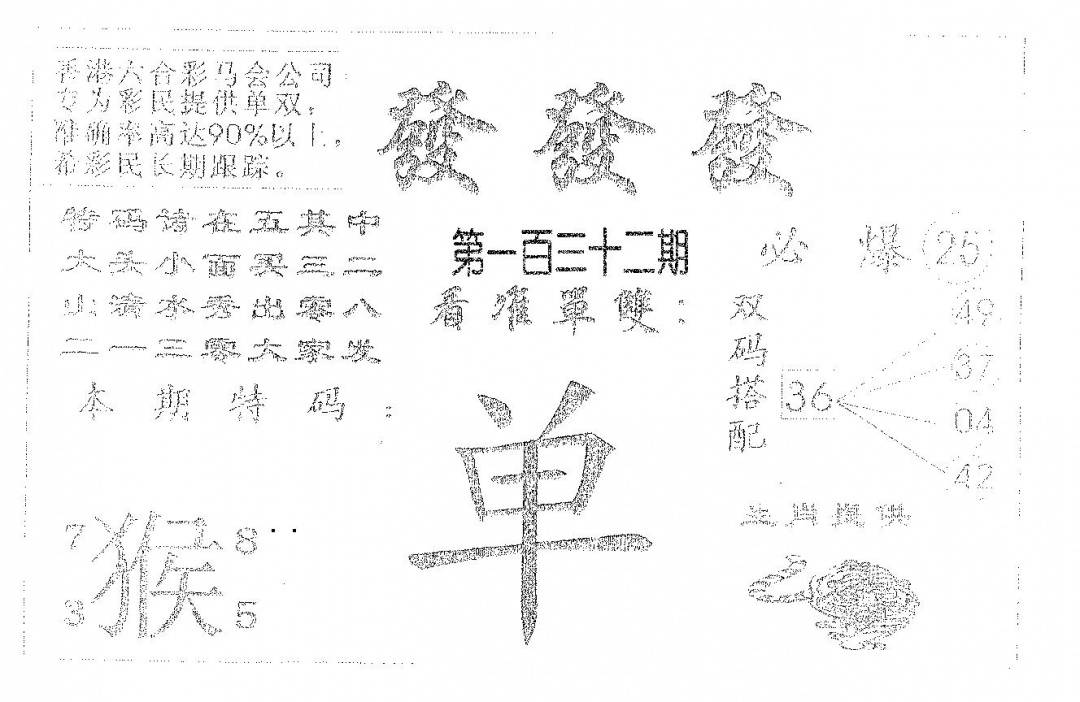 香港六合彩马会公司
专为彩民提供单双，
准确率高达90%以上，
希彩民长期跟踪。
發發發
特码请在五其中
大头小面买三二
山清水秀出零八
二一三零大家发
本期特码：
7 8
猴
3 5
第一百三十二期
看准單雙：
单
必爆 25
双码搭配
36
49
37
04
42
生肖提供